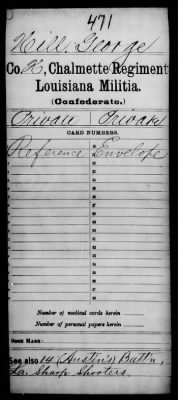 471
Hill, George
Co. K, Chalmette Regiment
Louisiana Militia.
(Confederate.)
Private | Private
CARD NUMBERS.
Reference Envelope
Number of medical cards herein
Number of personal papers herein
BOOK MARK:
See also 14 (Austin's) Batt'n,
La. Sharp Shooters